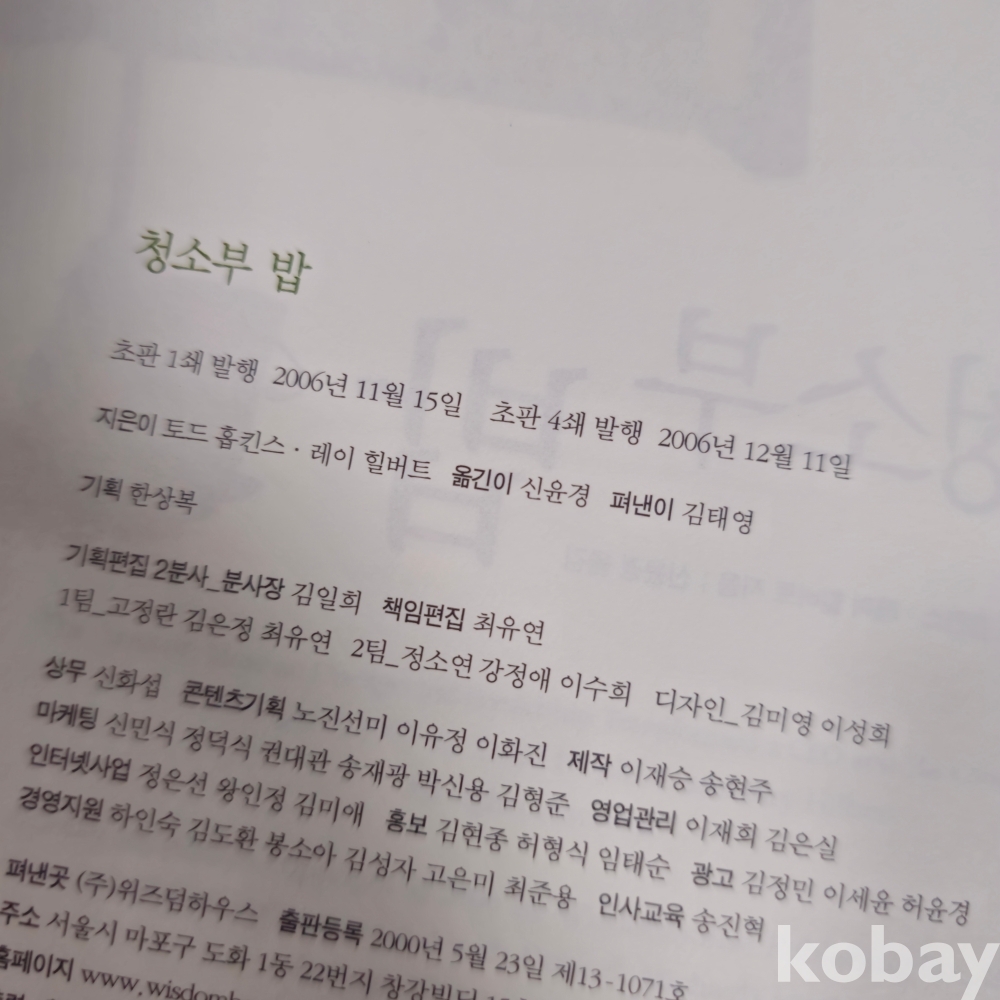 청소부 밥
초판 1쇄 발행 2006년 11월 15일 초판 4쇄 발행 2006년 12월 11일
지은이 토드 홉킨스 · 레이 힐버트 옮긴이 신윤경 펴낸이 김태영
기획 한상복
기획편집 2분사_분사장 김일희 책임편집 최유연
1팀_고정란 김은정 최유연 2팀_정소연 강정애 이수희 디자인_김미영 이성희
상무 신화섭 콘텐츠기획 노진선미 이유정 이화진 제작 이재승 송현주
마케팅 신민식 정덕식 권대관 송재광 박신용 김형준 영업관리 이재희 김은실
인터넷사업 정은선 왕인정 김미애 홍보 김현종 허형식 임태순 광고 김정민 이세윤 허윤경
경영지원 하인숙 김도환 봉소아 김성자 고은미 최준용 인사교육 송진혁
펴낸곳 (주)위즈덤하우스 출판등록 2000년 5월 23일 제13-1071호
주소 서울시 마포구 도화 1동 22번지 창강빌딩
홈페이지 www.wisdomh
kobay